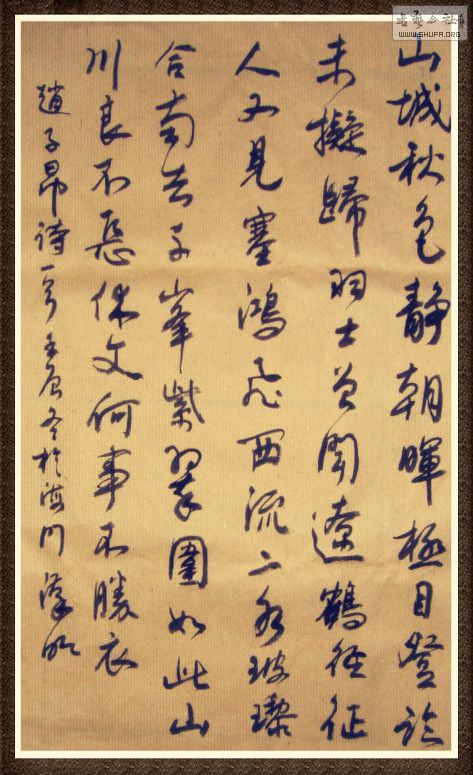 书艺公社
WWW.SHUFA.ORG
山城秋色靜朝暉極目登臨
未擬歸羽士曾聞遼鶴語征
人又見塞鴻飛西流二水玻瓈
合南去千峯紫翠圍如此山
川良不惡休文何事不勝衣
趙子昂詩一首壬辰冬於海門